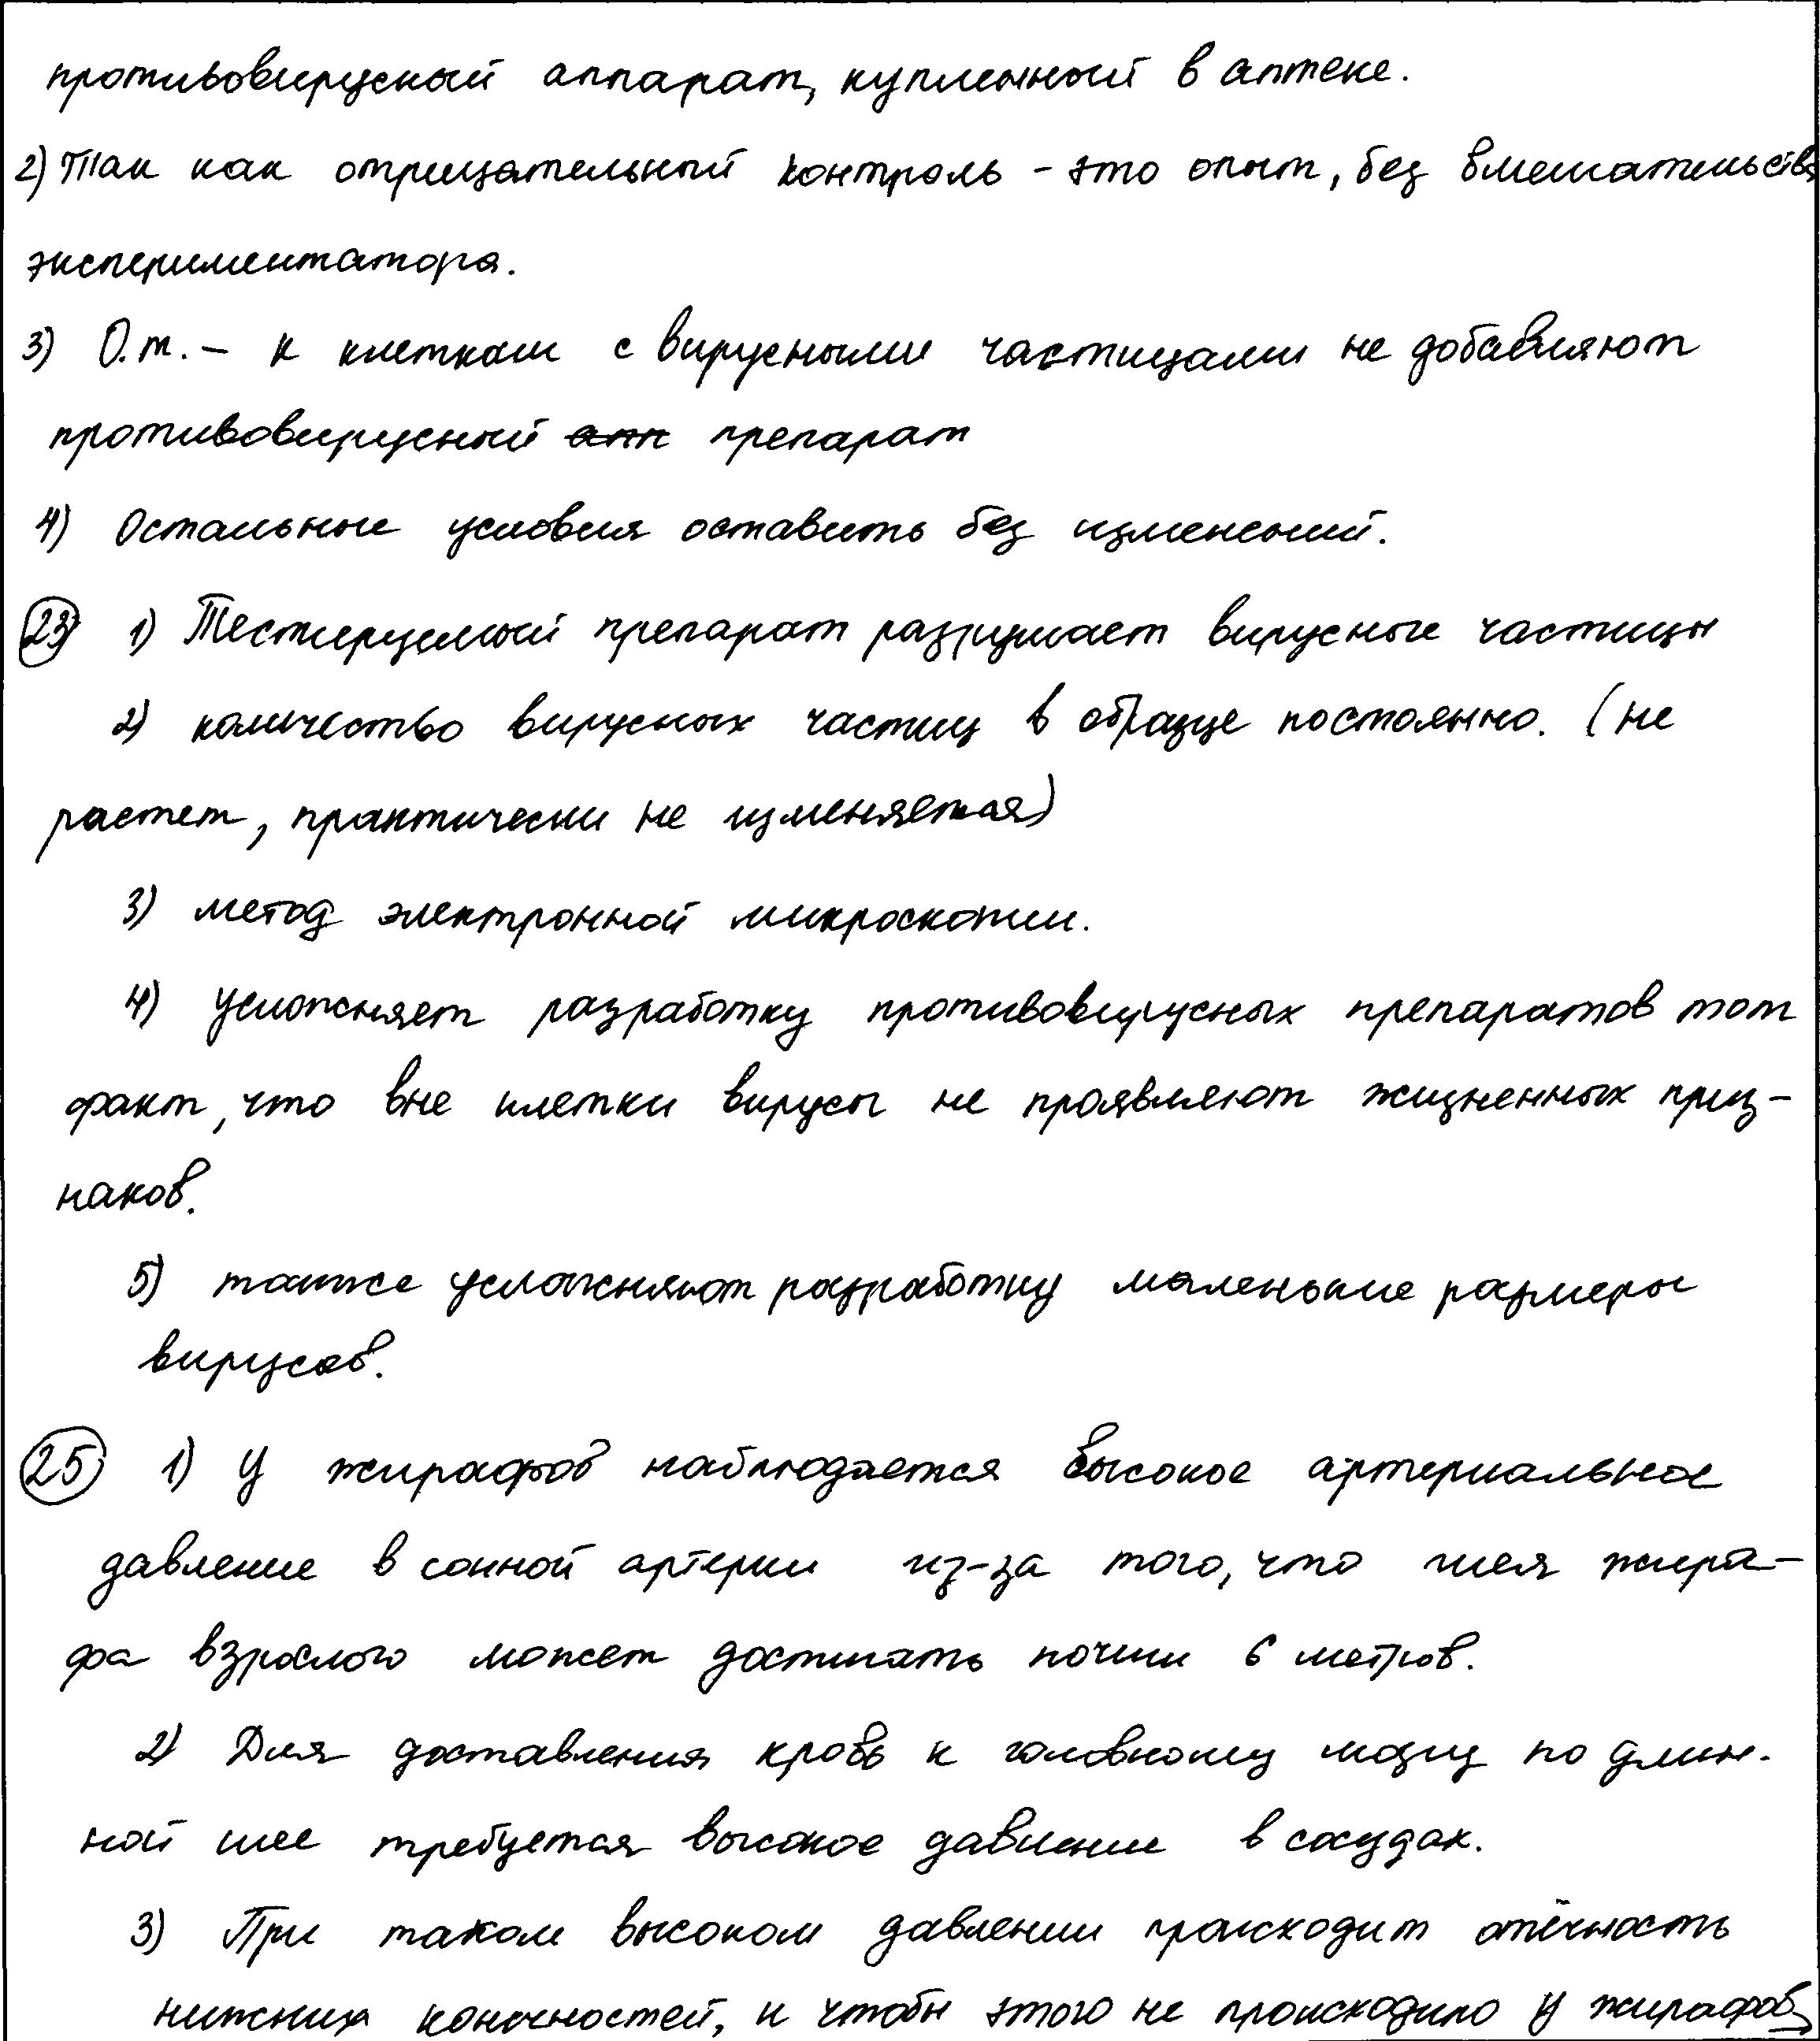 противовирусный аппарат, купленный в аптеке.
2) Так как отрицательный контроль - это опыт, без вмешательства
экспериментатора.
3) О.т. - к клеткам с вирусными частицами не добавляют
противовирусный апп препарат
4) Остальные условия оставить без изменений.
23 1) Тестируемый препарат разрушает вирусные частицы
2) количество вирусных частиц в образце постоянно. (не
растет, практически не изменяется)
3) метод электронной микроскопии.
4) усложняет разработку противовирусных препаратов тот
факт, что вне клетки вирусы не проявляют жизненных приз-
наков.
5) также усложняют разработку маленькие размеры
вирусов.
25 1) У жирафов наблюдается высокое артериальное
давление в сонной артерии из-за того, что шея жира-
фа взрослого может достигать почти 6 метров.
2) Для доставления кровь к головному мозгу по длин-
ной шее требуется высокое давление в сосудах.
3) При таком высоком давлении происходит отёчность
нижних конечностей, и чтобы этого не происходило у жирафов